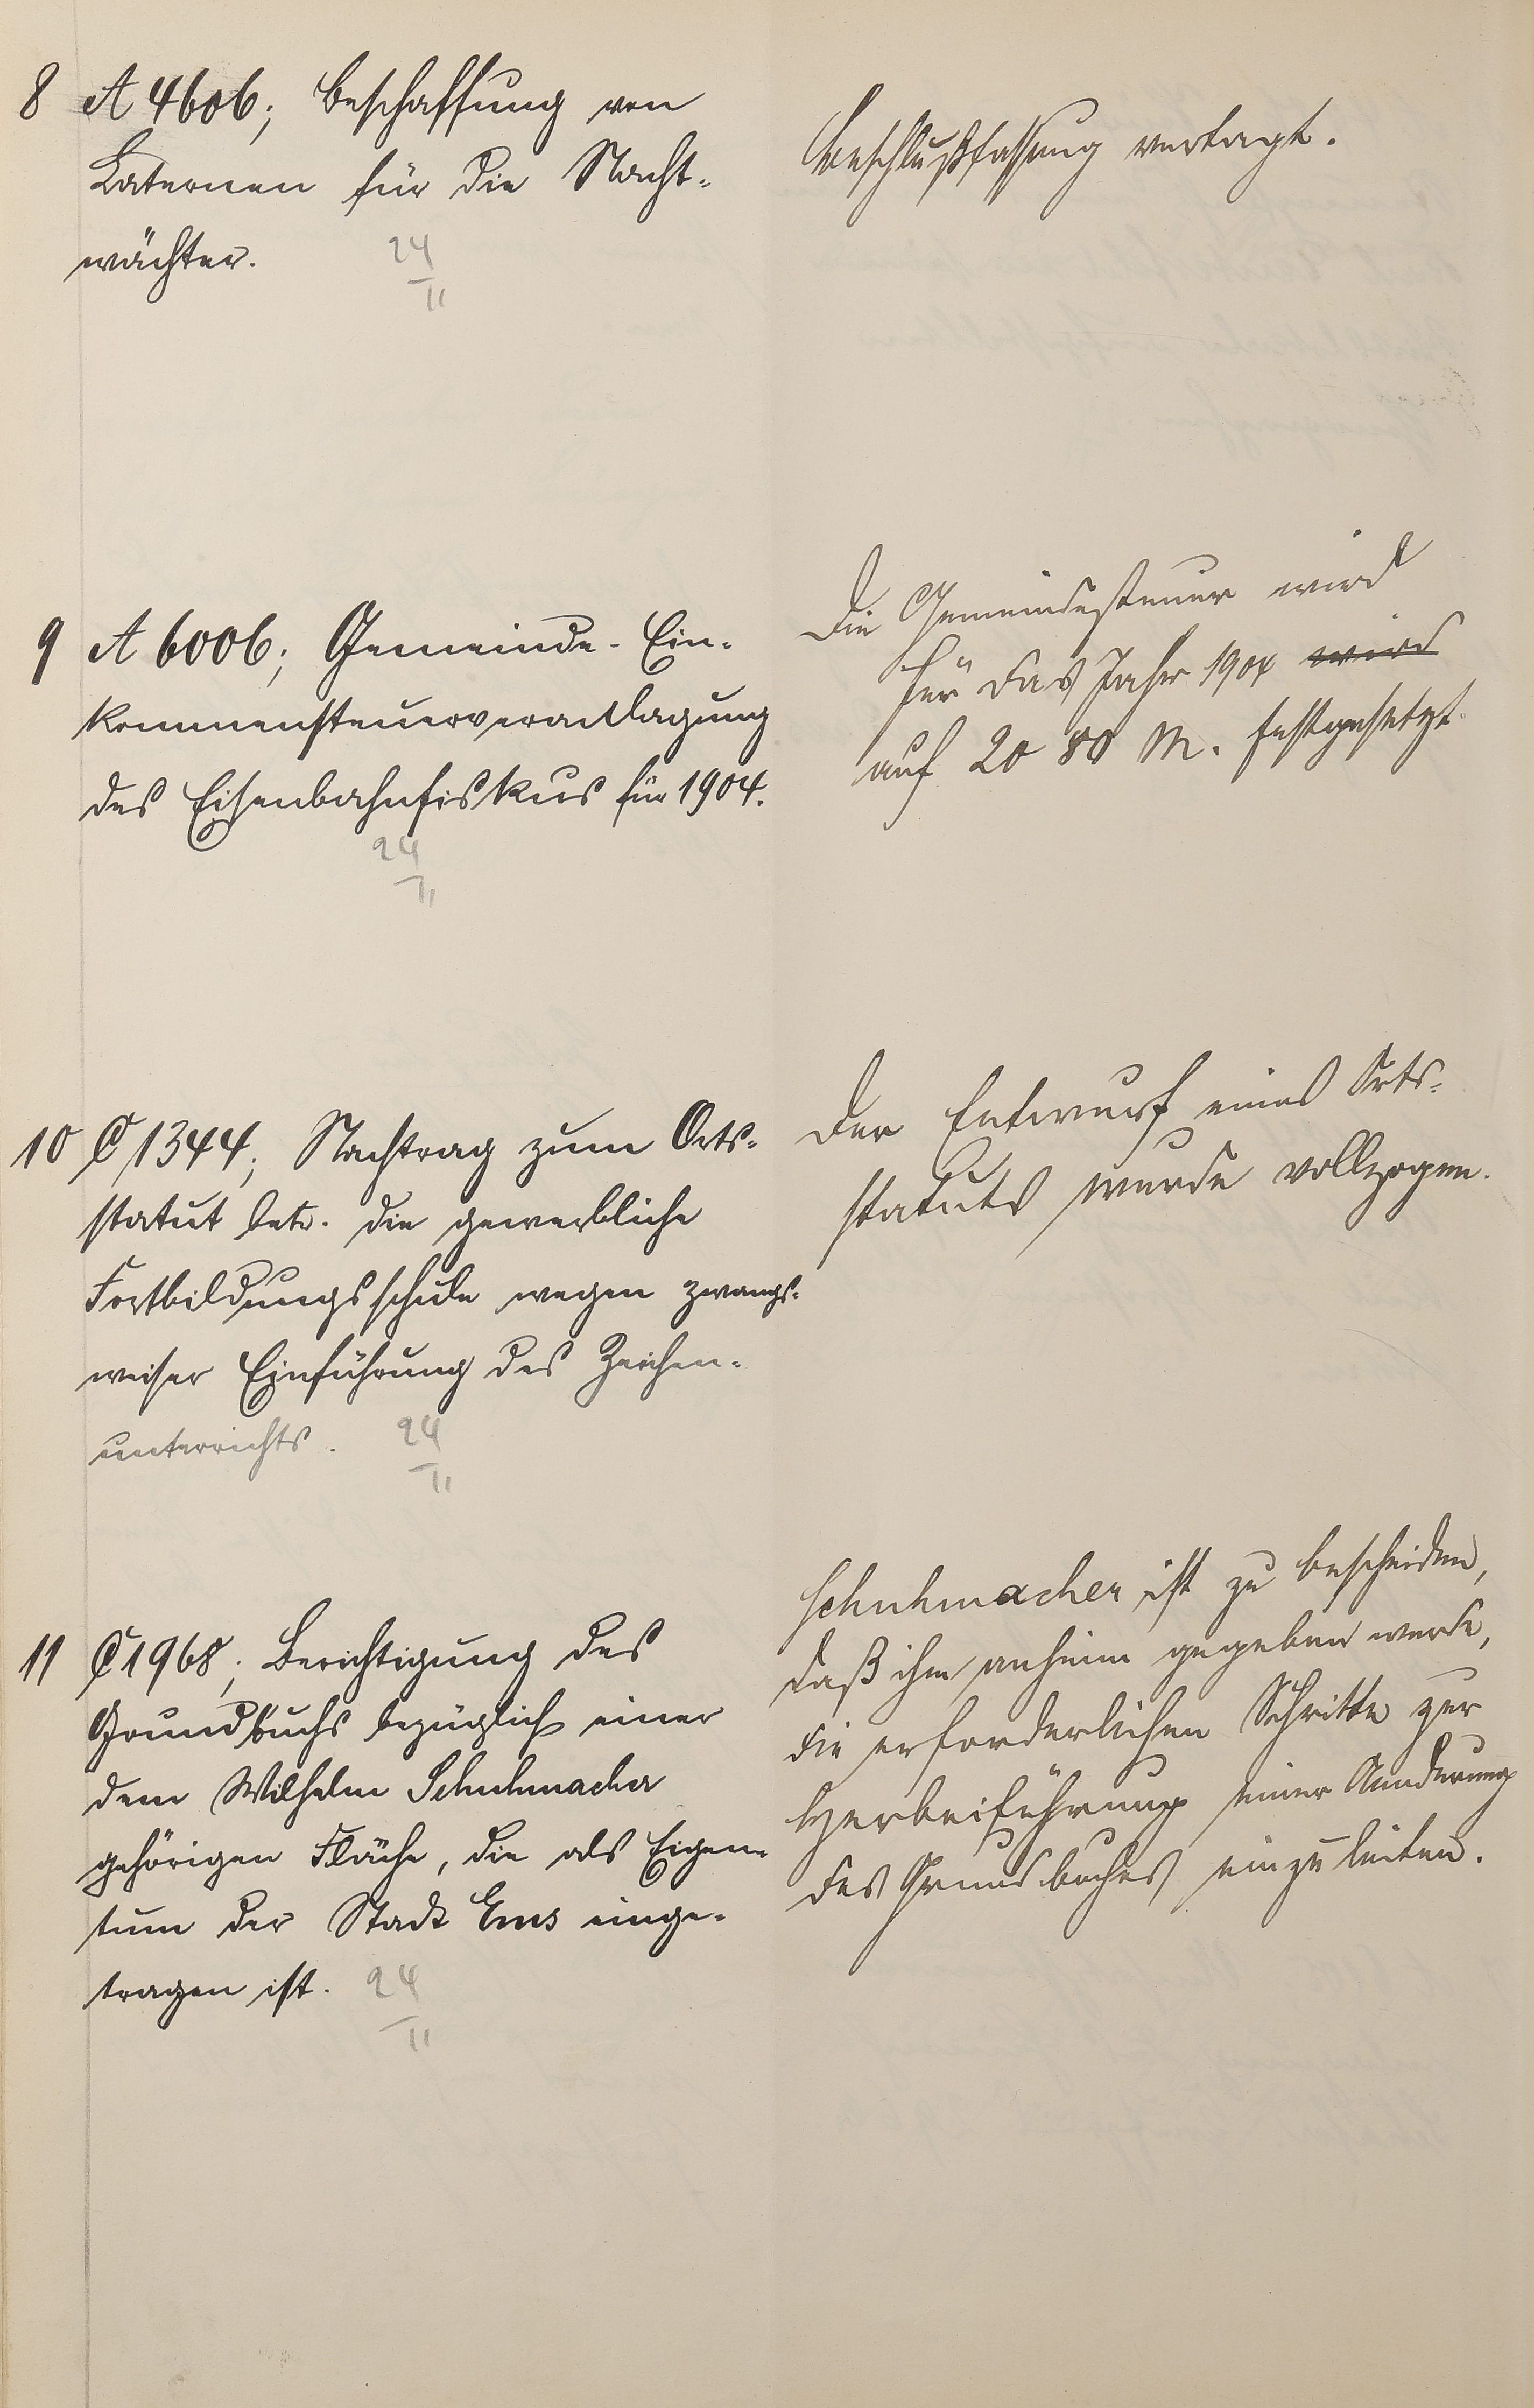 8 A 4606; Beschaffung von
Laternen für die Nacht-
wächter. 24
II
Beschlußfassung vertagt.
9 A 6006; Gemeinde-Ein-
kommensteuerveranlagung
des Eisenbahnfiskus für 1904.
24
II
Die Gemeindesteuer wird
für das Jahr 1904 wird
auf 2080 M. festgesetzt.
10 C 1344; Nachtrag zum Orts-
statut betr. die gewerbliche
Fortbildungsschule wegen zwangs-
weiser Einführung des Zeichen-
unterrichts. 24
II
Der Entwurf eines Orts-
statuts wurde vollzogen.
11 C 1968; Berichtigung des
Grundbuchs bezüglich einer
dem Wilhelm Schuhmacher
gehörigen Fläche, die als Eigen-
tum der Stadt Ems einge-
tragen ist. 24
II
Schuhmacher ist zu bescheiden,
daß ihm anheim gegeben werde,
die erforderlichen Schritte zur
Herbeiführung einer Aenderung
des Grundbuches einzuleiten.